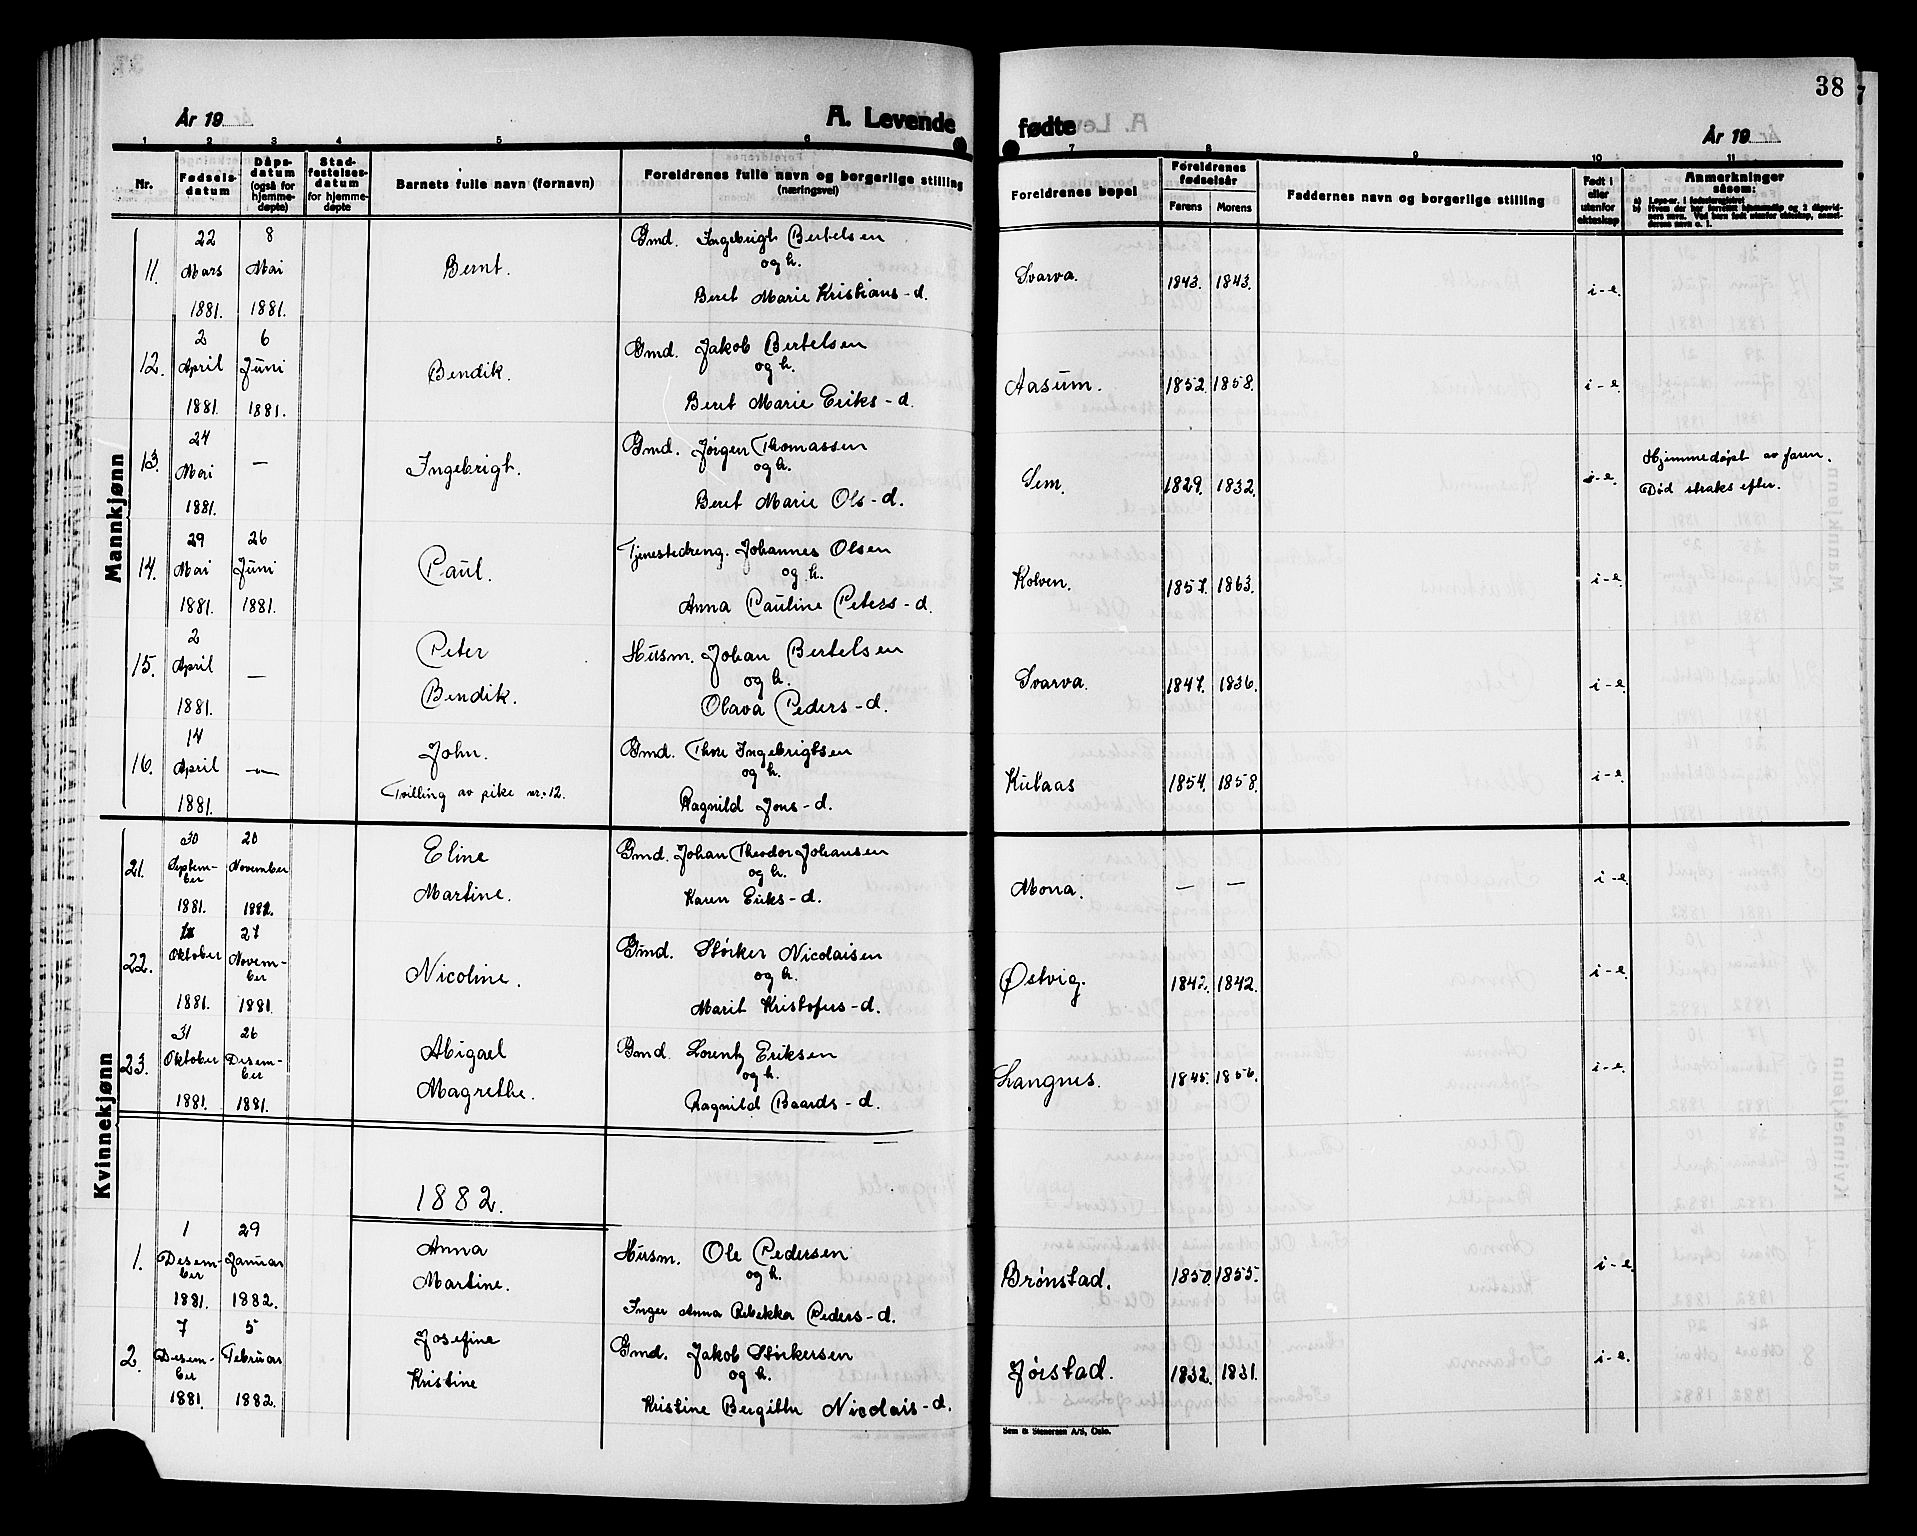 38
År 19
A. Levende
fødte
År 19
1 2 3 4 5 6 7 8 9 10 11
Nr.
Fødsels-
datum
Dåps-
datum
(også for
hjemme-
døpte)
Stad-
festelses-
datum
for hjemme-
døpte
Barnets fulle navn (fornavn)
Foreldrenes fulle navn og borgerlige stilling
(næringsvei)
Foreldrenes bopel
Foreldrenes
fødselsår
Farens Morens
Faddernes navn og borgerlige stilling
Født i
eller
utenfor
ekteskap
Anmerkninger
såsom:
Mannkjønn
11. 22 Mars 1881. 8 Mai 1881. Bernt. Gmd. Ingebrigt Bertelsen
og h.
Beret Marie Kristians-d. Svarva. 1843. 1843. i-e.
12. 2 April 1881. 6 Juni 1881. Bendik. Gmd. Jakob Bertelsen
og h.
Beret Marie Eriks-d. Aasum. 1852. 1858. i-e.
13. 24 Mai 1881. — Ingebrigt. Gmd. Jørgen Thomassen
og h.
Beret Marie Ols-d. Sem. 1829. 1832. i-e. Hjemmedøpt av faren.
Død straks efter.
14. 29 Mai 1881. 26 Juni 1881. Paul. Tjenestedreng. Johannes Olsen
og h.
Anna Pauline Peters-d. Kolven. 1857. 1863. i-e.
15. 2 April 1881. — Peter
Bendik. Husm. Johan Bertelsen
og h.
Olava Peders-d. Svarva. 1847. 1836. i-e.
16. 14 April 1881. — John.
Tvilling av pike nr. 12. Gmd. Thore Ingebrigtsen
og h.
Ragnild Jons-d. Kulaas 1854. 1858. i-e.
Kvinnekjønn
21. 30 Septem-
ber 1881. 20 November 1881. Eline
Martine. Gmd. Johan Theodor Johansen
og h.
Karen Eriks-d. Mona. — — i-e.
22. Oktober 1881. 27 Novem-
ber 1881. Nicoline. Gmd. Størker Nicolaisen
og h.
Marit Kristofers-d. Østvig. 1842. 1842. i-e.
23. 31 Oktober 1881. 26 Desem-
ber 1881. Abigael
Magrethe. Gmd. Lorentz Eriksen
og h.
Ragnild Baards-d. Langnes. 1845. 1856. i-e.
1882.
1. 1 Desem-
ber 1881. 29 Januar 1882. Anna
Martine. Husm. Ole Pedersen
og h.
Inger Anna Rebekka Peders-d. Brønstad. 1850. 1855. i-e.
2. 7 Desem-
ber 1881. 5 Februar 1882. Josefine
Kristine Gmd. Jakob Størkersen
og h.
Kristine Bergitte Nicolais-d. Jørstad. 1832. 1831. i-e.
Sem & Stenersen A/S, Oslo.